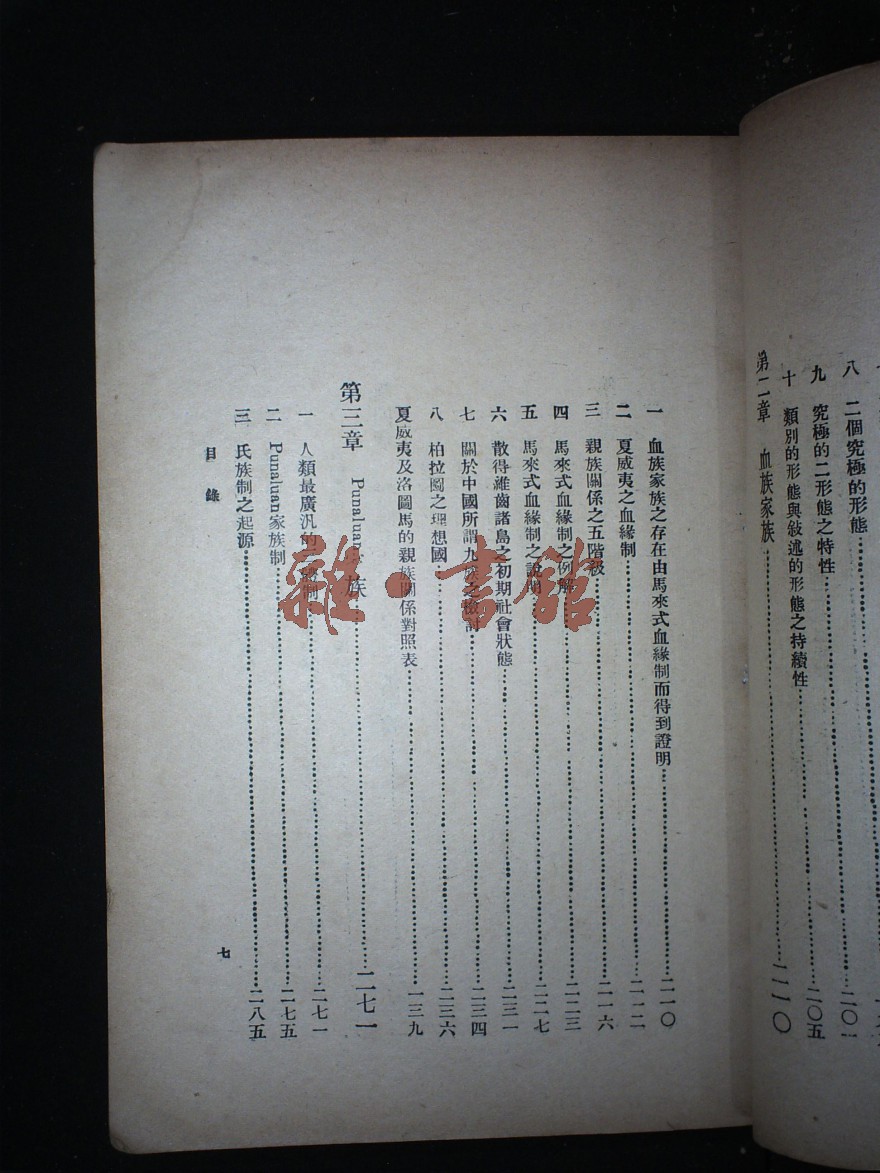 八 二個究極的形態 二〇一
九 究極的二形態之特性 二〇五
十 類別的形態與敍述的形態之持續性
第二章 血族家族 二一〇
一 血族家族之存在由馬來式血緣制而得到證明 二一〇
二 夏威夷之血緣制 二一二
三 親族關係之五階級 二一六
四 馬來式血緣制之例解 二二三
五 馬來式血緣制之說明 二二七
六 散得維齒諸島之初期社會狀態 二三一
七 關於中國所謂九族之檢討 二三四
八 柏拉圖之理想國 二三六
夏威夷及洛圖馬的親族關係對照表 一三九
第三章 Punaluan 族 二七一
一 人類最廣汎的 制 二七一
二 Punaluan家族制 二七五
三 氏族制之起源 二八五
目錄
七
雜·書館